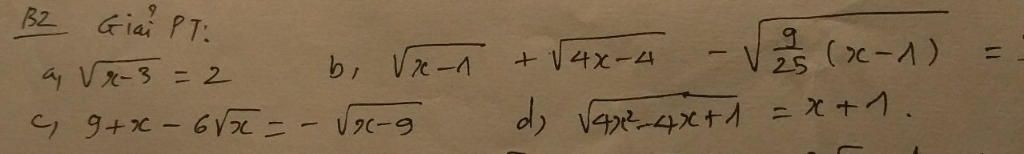 B2 Giải PT:
a, √(x-3) = 2 b, √(x-1) + √(4x-4) - √(9/25 (x-1)) =
c, 9+x - 6√x = - √(x-9) d, √(4x²-4x+1) = x+1.